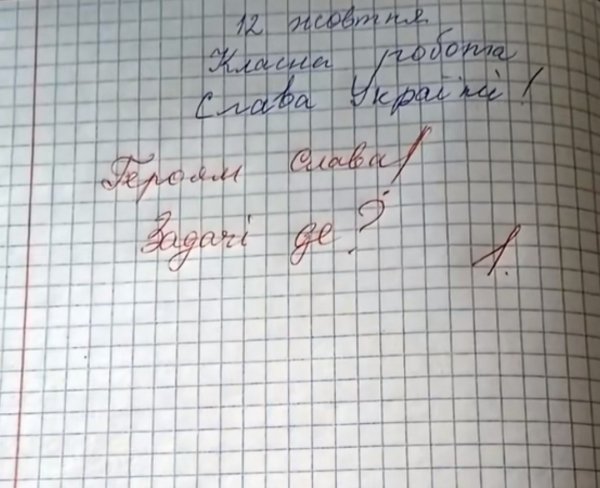 12 жовтня
Класна робота
Слава Україні!
Героям слава!
Задачі де?
1.